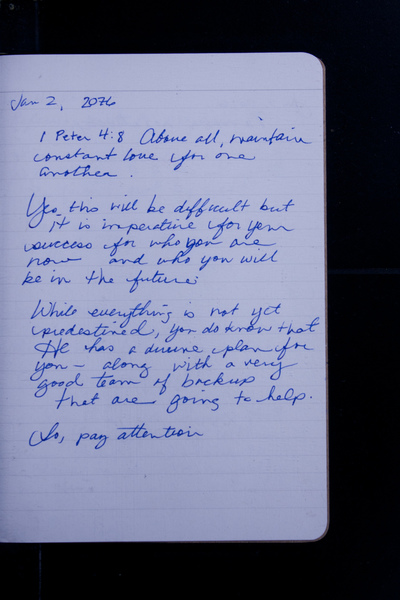 Jan 2, 2076
1 Peter 4:8 Above all, maintain
constant love for one
another.
Yes, this will be difficult but
it is imperative for your
success for who you are
now and who you will
be in the future.
While everything is not yet
predestined, you do know that
He has a divine plan for
you - along with a very
good team of backup
that are going to help.
So, pay attention